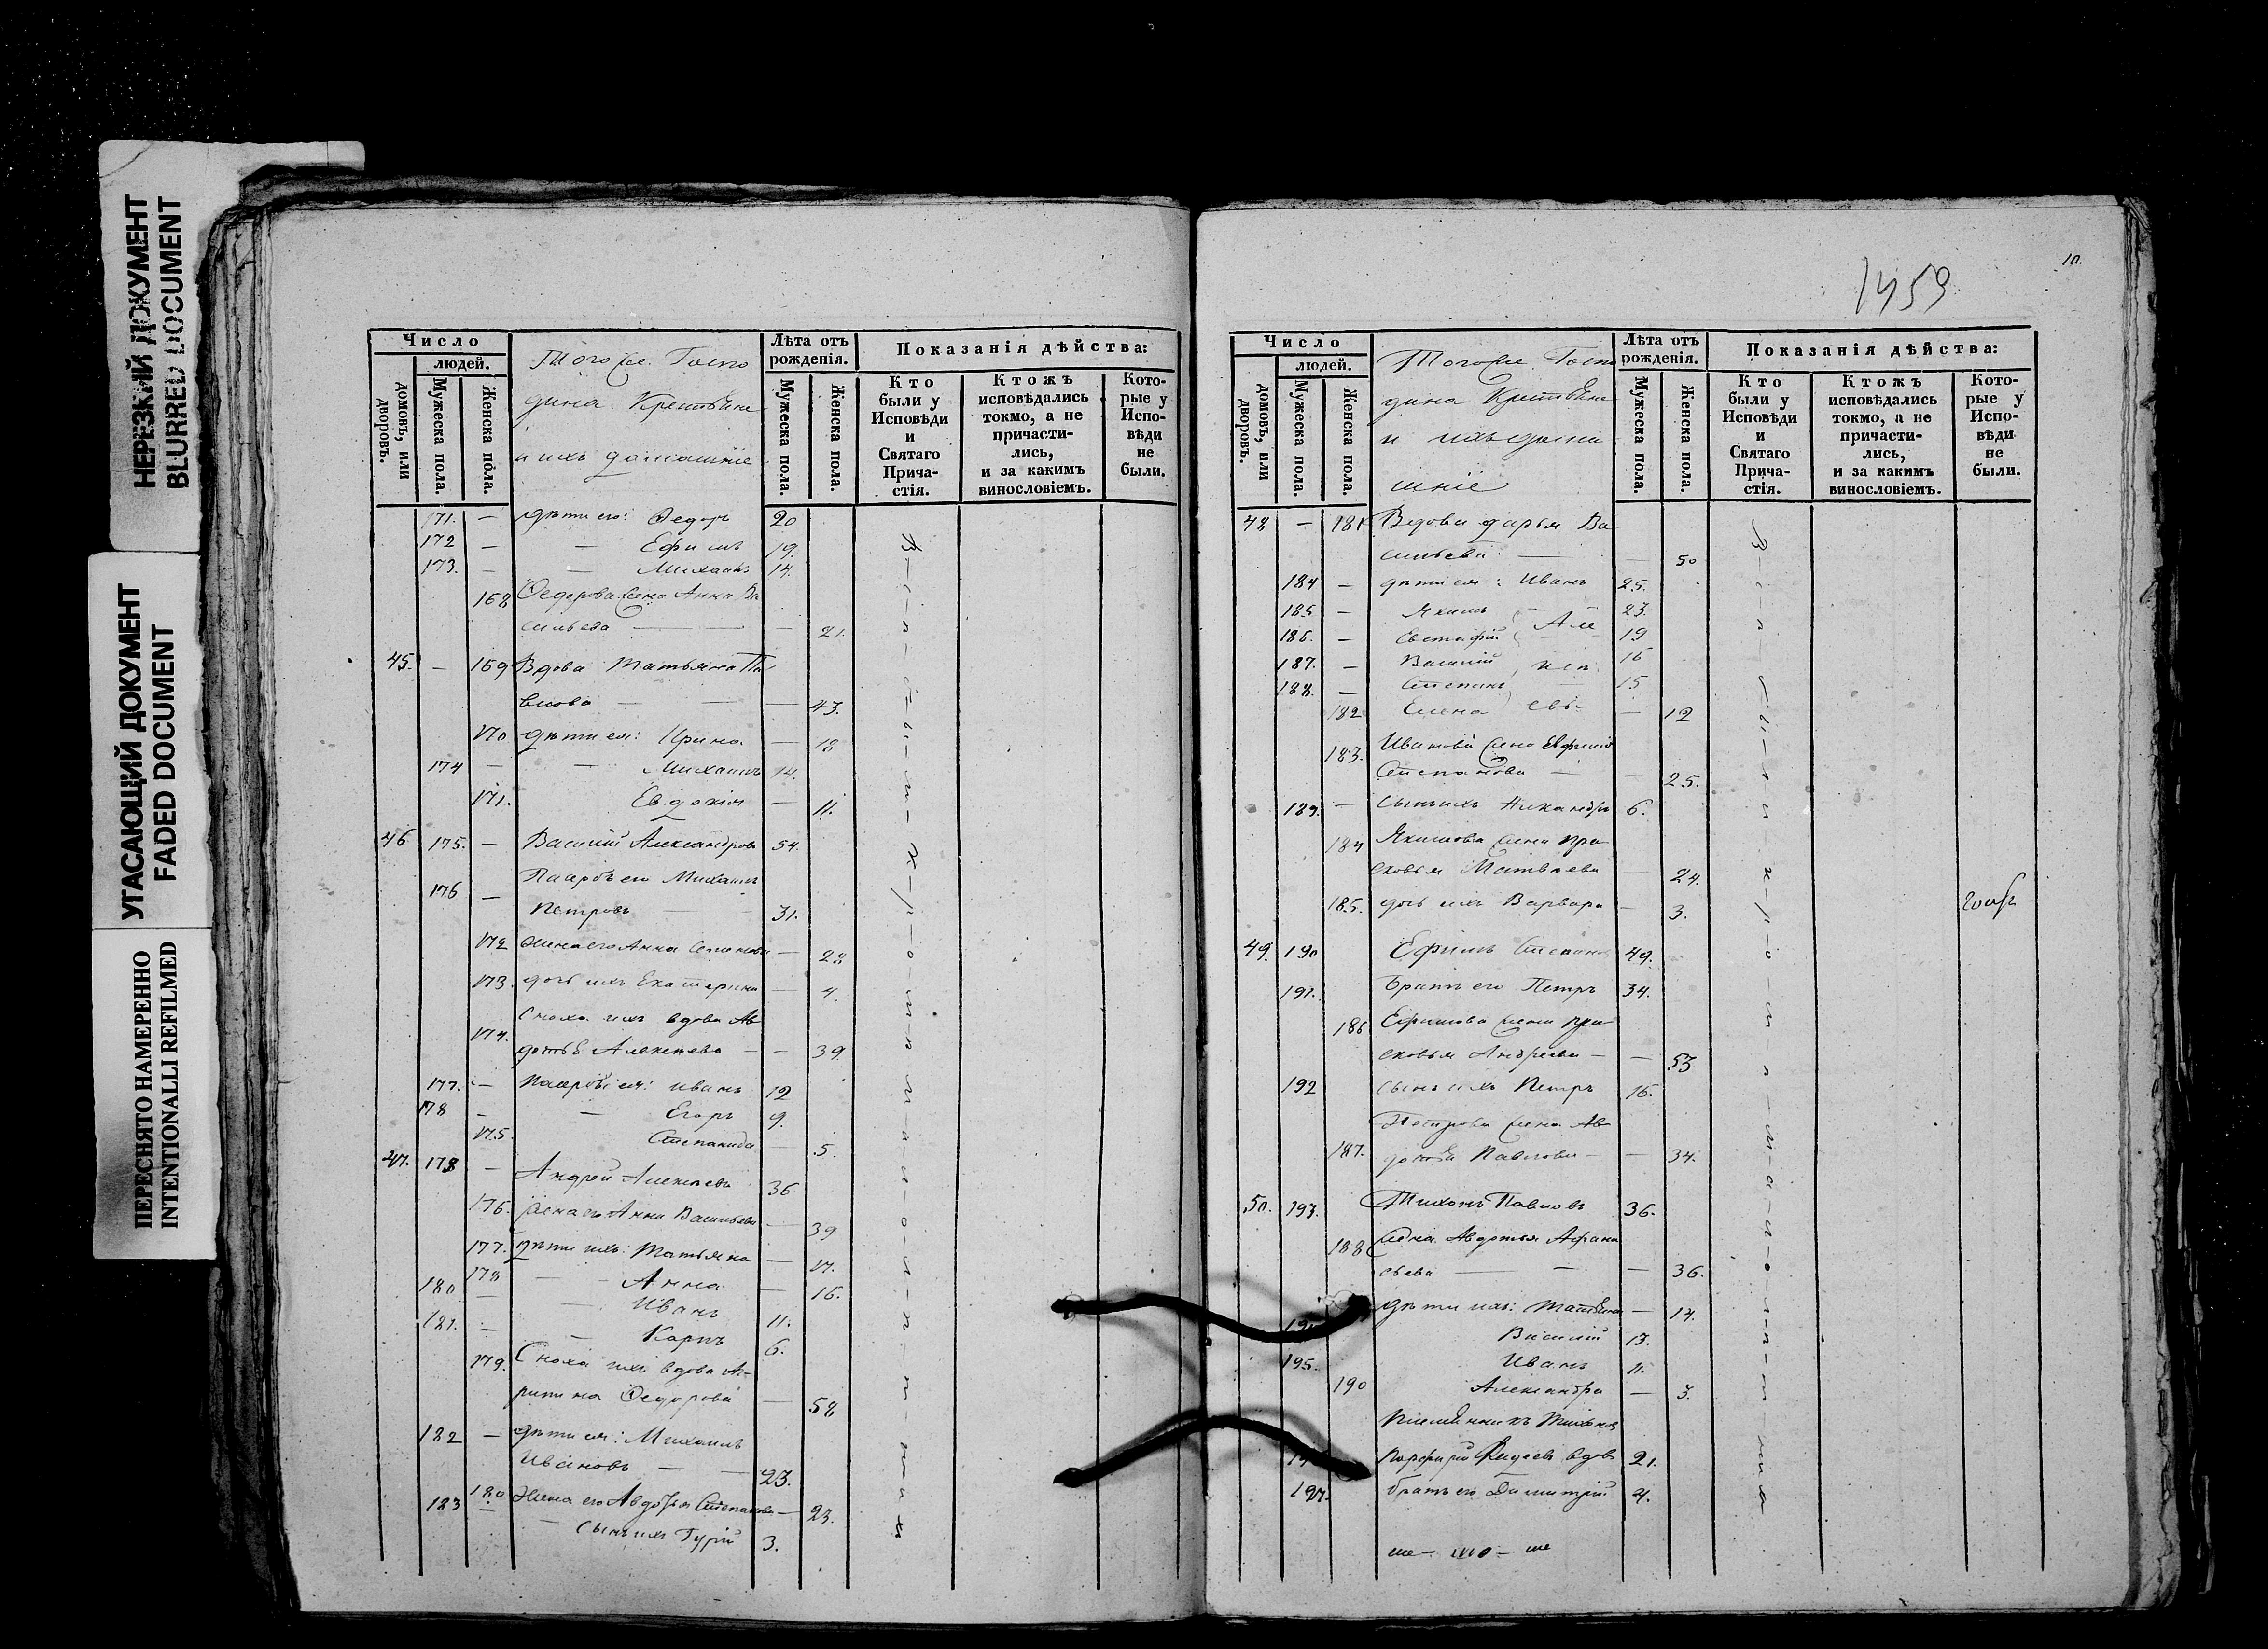 НЕРЕЗКИЙ ДОКУМЕНТ
BLURRED DOCUMENT
УГАСАЮЩИЙ ДОКУМЕНТ
FADED DOCUMENT
ПЕРЕСНЯТО НАМЕРЕННО
INTENTIONALLI REFILMED
Число
людей.
домовъ, или дворовъ.
Мужеска пола.
Женска пола.
Тогоже Госпо
дина Крестьяне
и ихъ домашніе
Лѣта отъ рожденія.
Мужеска пола.
Женска пола.
Показанія дѣйства:
Кто были у Исповѣди и Святаго Прича-стія.
Ктожъ исповѣдались токмо, а не причасти-лись, и за какимъ винословіемъ.
Кото-рые у Испо-вѣди не были.
171. — Дѣти его: Федоръ 20
172 — — Ефимъ 19.
173. — — Михаилъ 14.
168 Федорова жена Анна Ва
сильева — — 21.
45. — 169 Вдова Татьяна Па
влова — — — 43.
170 Дѣти ея: Ирина — 18
174 — — Михаилъ 14.
171. Евдокія — 11.
46 175. — Василій Александровъ 54.
176 — Михаилъ
Петровъ — 31.
172 Жена его Анна — 28
173. дочь ихъ Екатерина — 4.
174. Сноха ихъ вдова Ав
дотья Алексеева — — 39.
177. — ея: Иванъ 12
178 — — Егоръ 9.
175. Степанида — 5.
47. 178 — Андрей Алексеевъ 36
176. Жена его Анна Васильева — 39
177. Дѣти ихъ: Татьяна — 17.
178 — — Анна — 16.
180 — — Иванъ 11.
181. — — Карпъ 6.
179. Сноха ихъ вдова
Федорова — 58
182 — Дѣти ея: Михаилъ
Ивановъ — — 23.
180 Жена его Авдотья Степанова — 23.
183 — — сынъ ихъ Гурій 3.
10.
1459
Число
людей.
домовъ, или дворовъ.
Мужеска пола.
Женска пола.
Тогоже Госпо
дина Крестьяне
и ихъ дома
шніе
Лѣта отъ рожденія.
Мужеска пола.
Женска пола.
Показанія дѣйства:
Кто были у Исповѣди и Святаго Прича-стія.
Ктожъ исповѣдались токмо, а не причасти-лись, и за какимъ винословіемъ.
Кото-рые у Испо-вѣди не были.
48 — 181 Вдова Дарья Ва
сильева — — 50
184 — дѣти ея: Иванъ 25.
185 — Якимъ — Але 23.
186. — Евстафій 19
187. — Василій ксѣ 16
188. — Степанъ — 15
182 Елена евы — 12
183. Иванова жена Евфимія
Степанова — — 25.
189. — сынъ ихъ Никандръ 6.
184 Якимова жена Пра
сковья Матвѣева — 24.
185. дочь ихъ Варвара — 3.
49. 190 Ефимъ Степановъ 49.
191. Братъ его Петръ 34.
186 Ефимова жена Пра
сковья Андреева — — 53
192 сынъ ихъ Петръ 16.
Петрова жена Ав
187. дотья Павлова — — 34.
50. 193. Тихонъ Павловъ 36.
188 Жена Авдотья Афана
сьева — — — 36.
дѣти ихъ: Татьяна — 14.
Василій 13.
195. Иванъ 11.
190 Александра — 3.
Племянникъ Тихона
Порфирій вдов 21.
197. братъ его Димитрій 4.